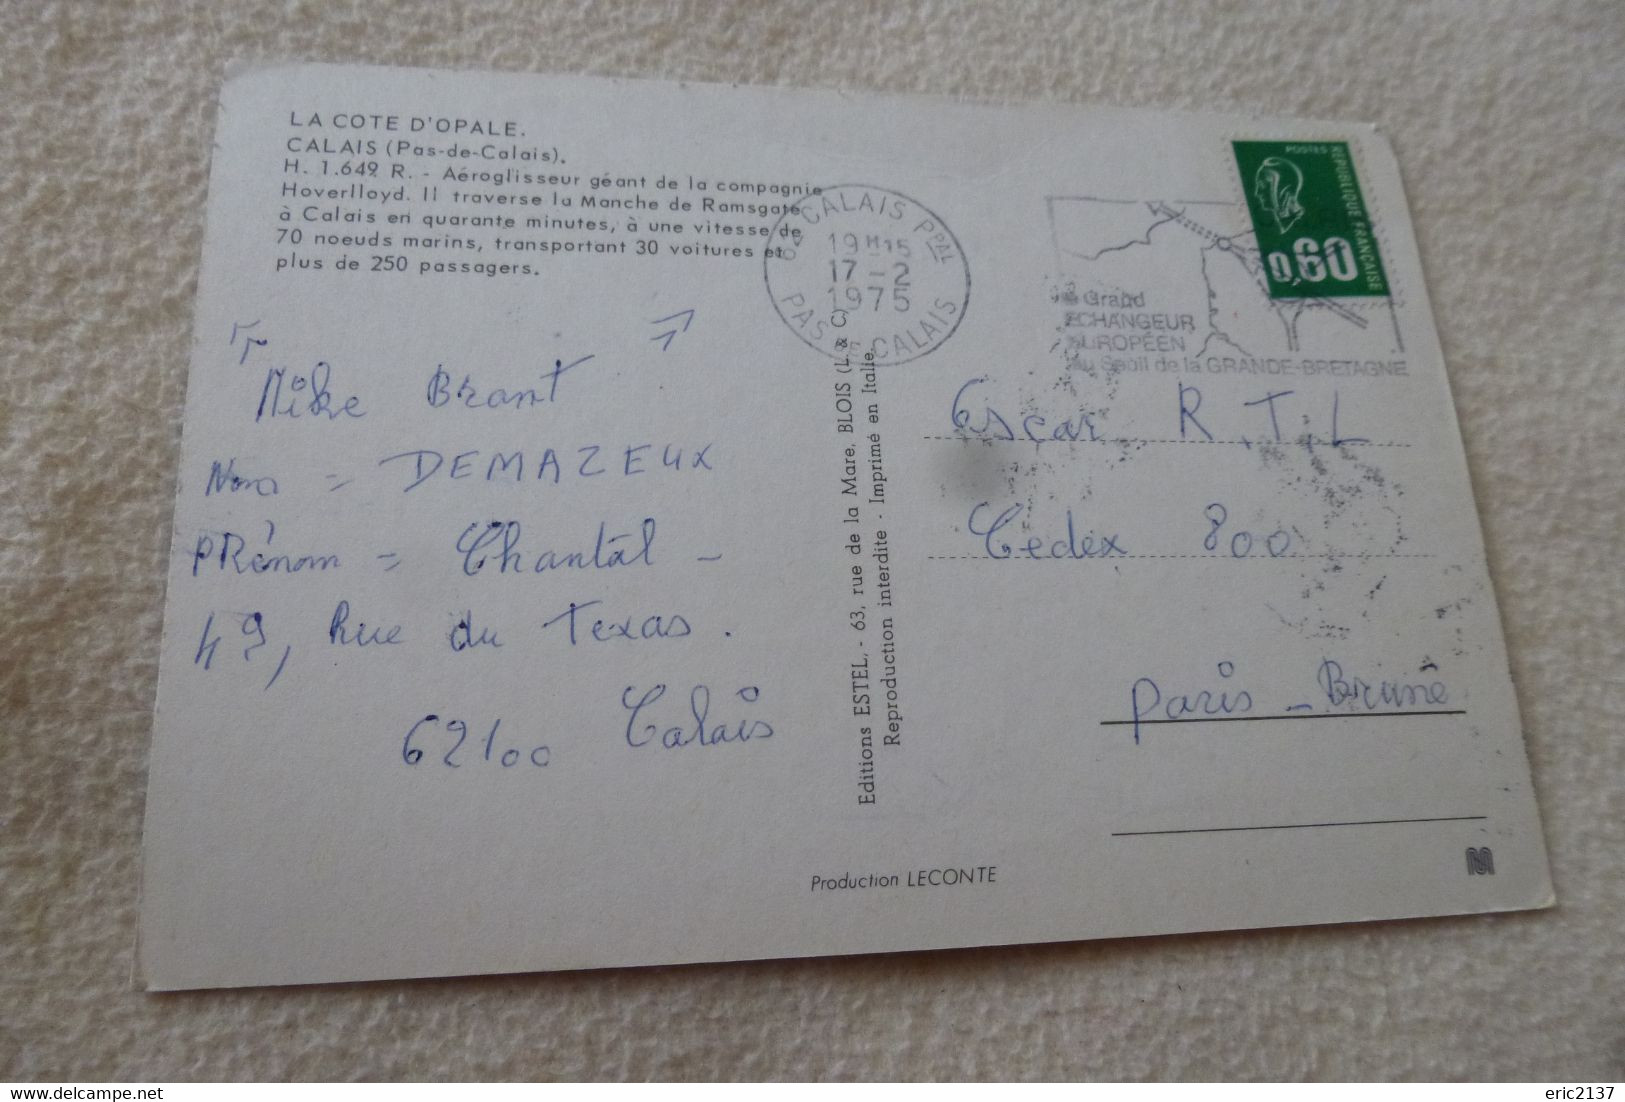 LA COTE D'OPALE.
CALAIS (Pas-de-Calais).
H. 1.649 R. - Aéroglisseur géant de la compagnie
Hoverlloyd. Il traverse la Manche de Ramsgate
à Calais en quarante minutes, à une vitesse de
70 noeuds marins, transportant 30 voitures et
plus de 250 passagers.
62 CALAIS PPAL
19H15
17-2
1975
PAS DE CALAIS
Grand
ECHANGEUR
EUROPÉEN
au Seuil de la GRANDE-BRETAGNE
POSTES
RÉPUBLIQUE FRANÇAISE
0,60
" Mike Brant "
Nom = DEMAZEUX
PRénom = Chantal -
49, Rue du Texas.
62100 Calais
Editions ESTEL, - 63, rue de la Mare, BLOIS (L. & C.)
Reproduction interdite - Imprimé en Italie.
Escar R.T.L
Cedex 800
Paris - Brune
Production LECONTE
eric2137